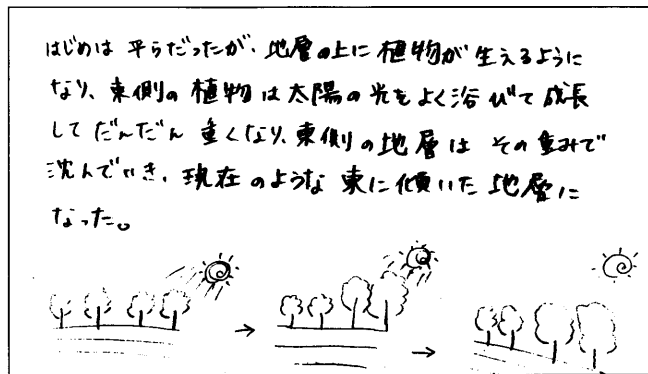 はじめは平らだったが、地層の上に植物が生えるように
なり、東側の植物は太陽の光をよく浴びて成長
してだんだん重くなり、東側の地層はその重みで
沈んでいき、現在のような東に傾いた地層に
なった。